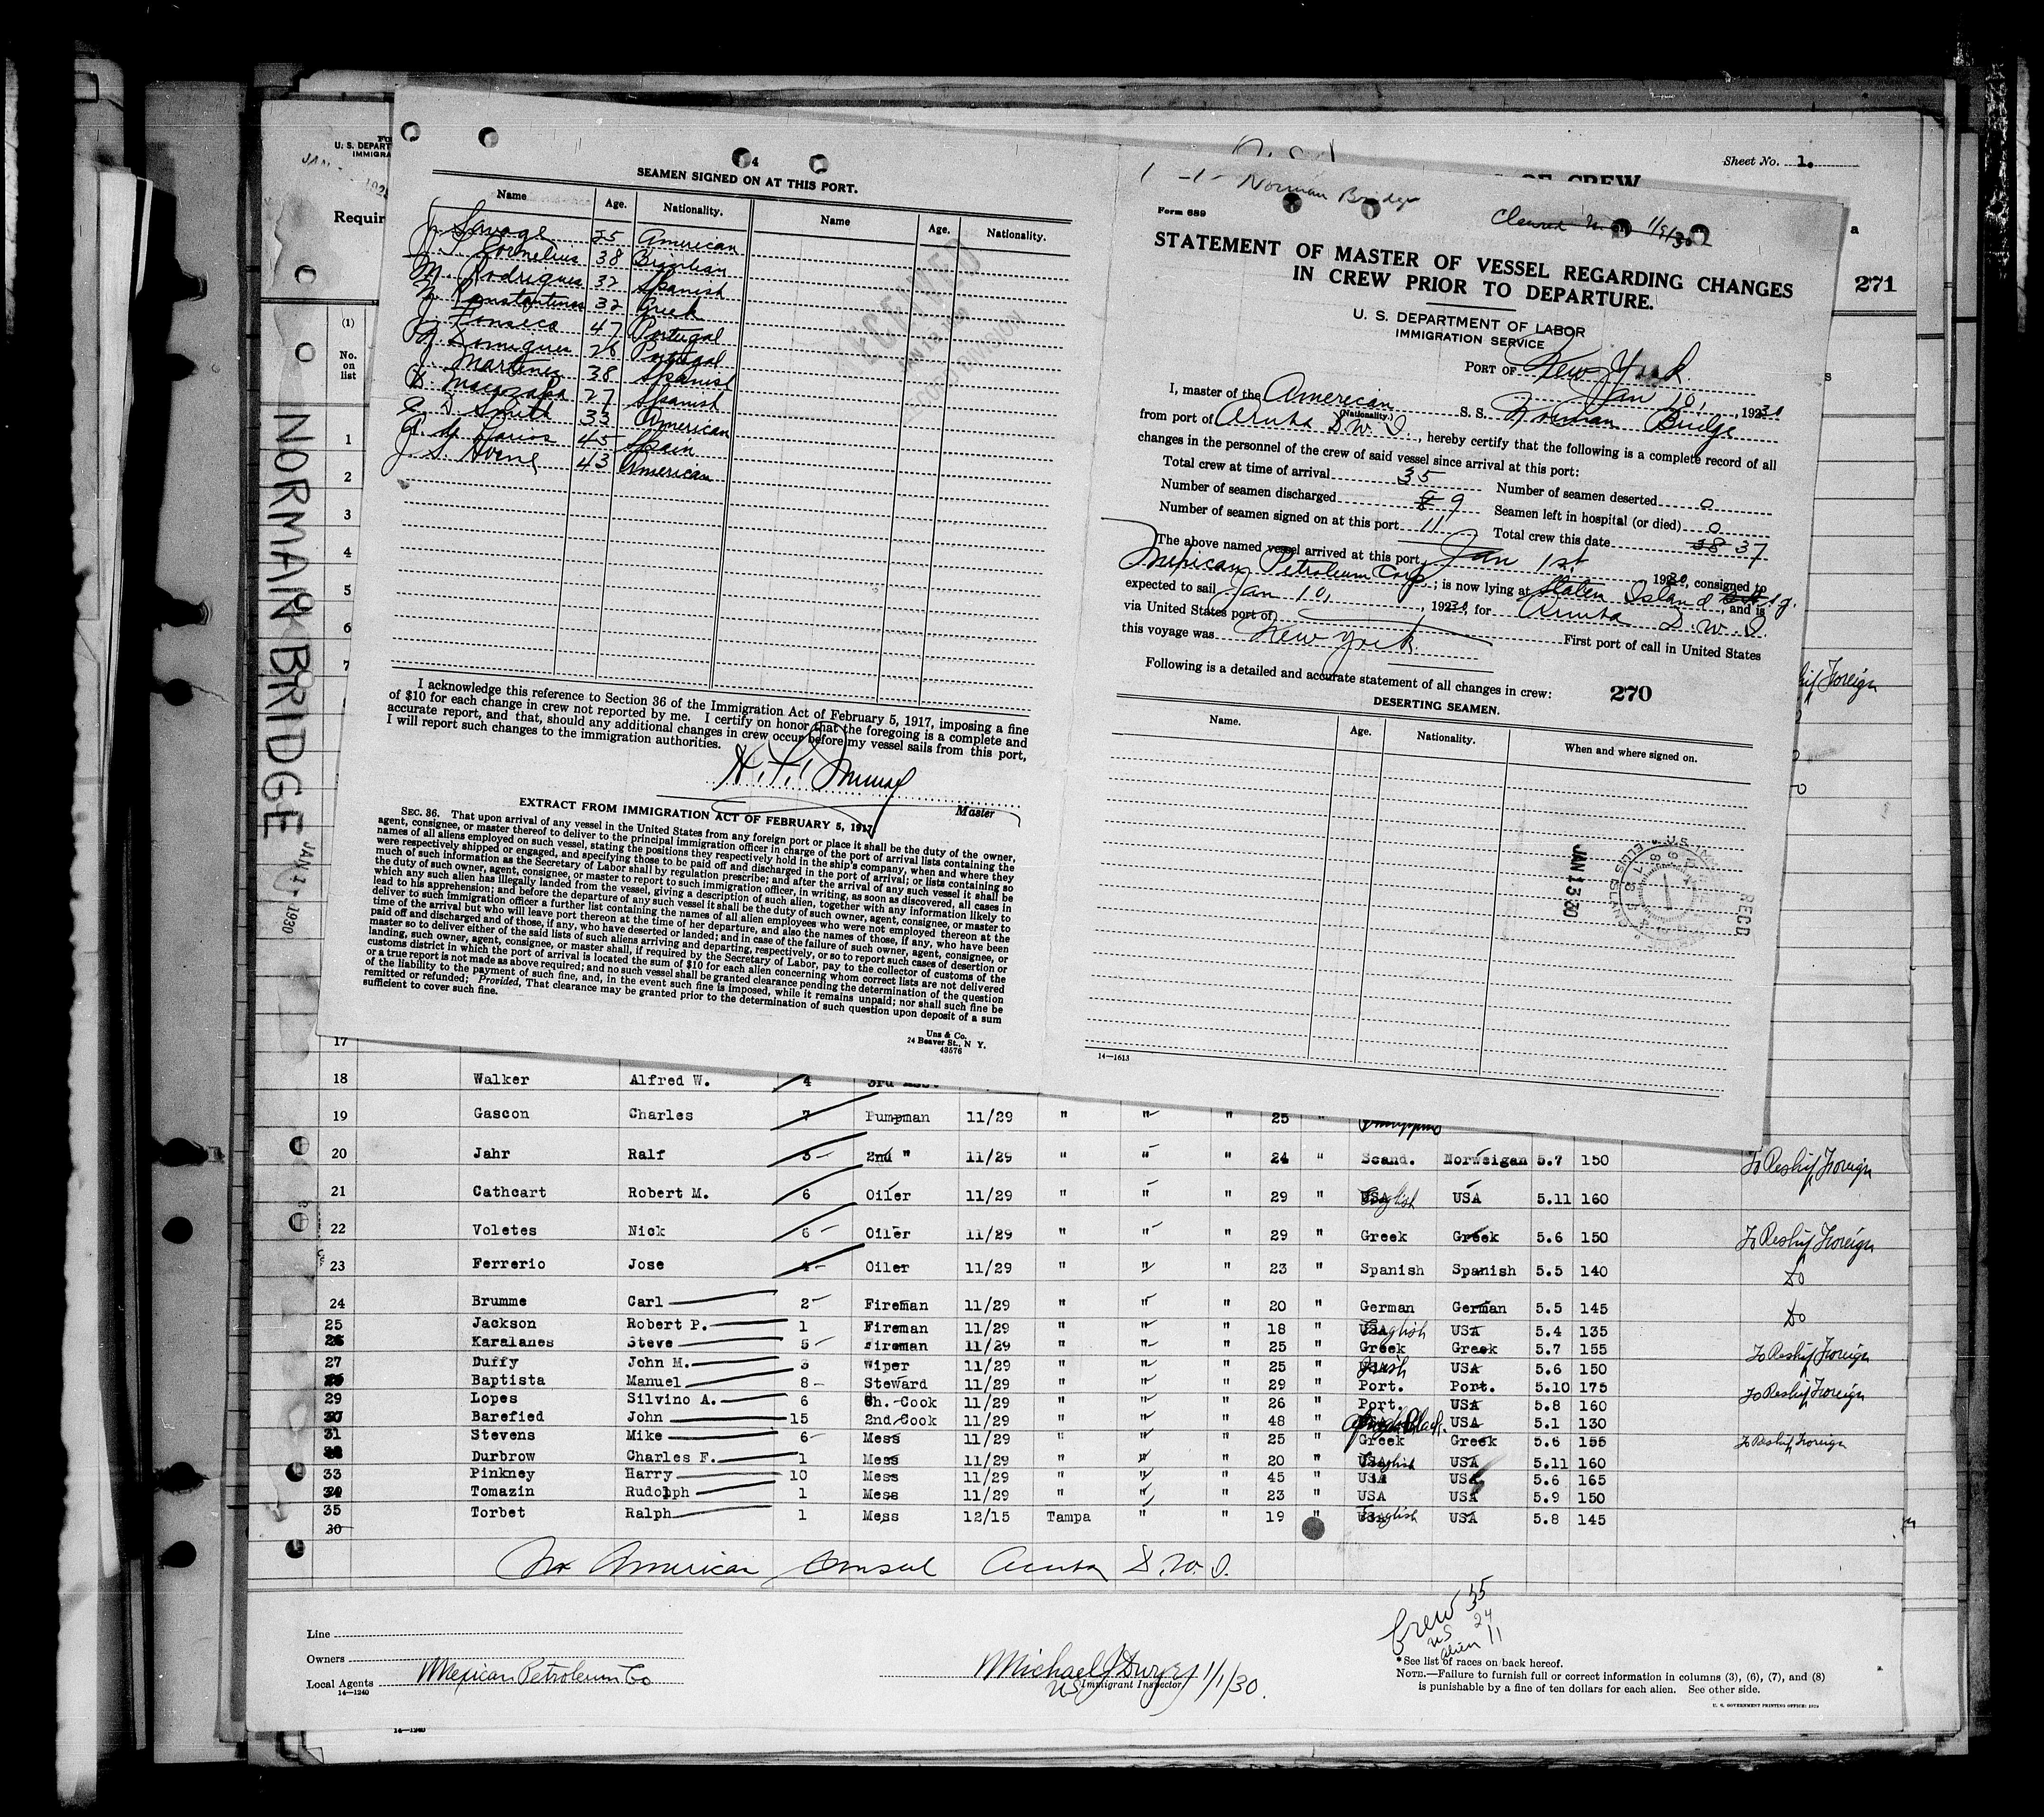 NORMAN BRIDGE
JAN 2 - 1930
U. S. DEPART
IMMIGRA
Requir
(1)
No.
on
list
1
2
3
4
5
6
7
4
SEAMEN SIGNED ON AT THIS PORT.
Name Age. Nationality. Name Age. Nationality.
J. Savage 25 American
J. S. Cornelius 38 Brazilian
M. Rodrigues 32 Spanish
N. Constantinos 32 Greek
J. Fonseca 47 Portugal
M. Domigues 26 Portugal
J. Martines 38 Spanish
27 Spanish
C. D. Smith 33 American
45 Spain
J. S. 43 American
RECEIVED
RECORD DIVISION
I acknowledge this reference to Section 36 of the Immigration Act of February 5, 1917, imposing a fine
of $10 for each change in crew not reported by me. I certify on honor that the foregoing is a complete and
accurate report, and that, should any additional changes in crew occur before my vessel sails from this port,
I will report such changes to the immigration authorities.
Master
EXTRACT FROM IMMIGRATION ACT OF FEBRUARY 5, 1917.
SEC. 36. That upon arrival of any vessel in the United States from any foreign port or place it shall be the duty of the owner,
agent, consignee, or master thereof to deliver to the principal immigration officer in charge of the port of arrival lists containing the
names of all aliens employed on such vessel, stating the positions they respectively hold in the ship's company, when and where they
were respectively shipped or engaged, and specifying those to be paid off and discharged in the port of arrival; or lists containing so
much of such information as the Secretary of Labor shall by regulation prescribe; and after the arrival of any such vessel it shall be
the duty of such owner, agent, consignee, or master to report to such immigration officer, in writing, as soon as discovered, all cases in
which any such alien has illegally landed from the vessel, giving a description of such alien, together with any information likely to
lead to his apprehension; and before the departure of any such vessel it shall be the duty of such owner, agent, consignee, or master to
deliver to such immigration officer a further list containing the names of all alien employees who were not employed thereon at the
time of the arrival but who will leave port thereon at the time of her departure, and also the names of those, if any, who have been
paid off and discharged and of those, if any, who have deserted or landed; and in case of the failure of such owner, agent, consignee, or
master so to deliver either of the said lists of such aliens arriving and departing, respectively, or so to report such cases of desertion or
landing, such owner, agent, consignee, or master shall, if required by the Secretary of Labor, pay to the collector of customs of the
customs district in which the port of arrival is located the sum of $10 for each alien concerning whom correct lists are not delivered
or a true report is not made as above required; and no such vessel shall be granted clearance pending the determination of the question
of the liability to the payment of such fine, and, in the event such fine is imposed, while it remains unpaid; nor shall such fine be
remitted or refunded; Provided, That clearance may be granted prior to the determination of such question upon deposit of a sum
sufficient to cover such fine.
Unz & Co.
24 Beaver St., N Y.
43576
Sheet No. 1.
OF CREW
271
1 -1- Norman Bridge
Form 689
Cleared 1/9/30
STATEMENT OF MASTER OF VESSEL REGARDING CHANGES
IN CREW PRIOR TO DEPARTURE.
U. S. DEPARTMENT OF LABOR
IMMIGRATION SERVICE
PORT OF New York
Jan 10, , 1930
I, master of the American S. S. Norman Bridge
(Nationality.)
from port of Aruba D. W. I. , hereby certify that the following is a complete record of all
changes in the personnel of the crew of said vessel since arrival at this port:
Total crew at time of arrival 35
Number of seamen deserted 0
Number of seamen discharged 8 9
Seamen left in hospital (or died) 0
Number of seamen signed on at this port 11
Total crew this date 38 37
The above named vessel arrived at this port Jan 1st 1930, consigned to
Mexican Petroleum Corp ; is now lying at Staten Island , and is
expected to sail Jan 10, , 1930, for Aruba D. W. I.
via United States port of
First port of call in United States
this voyage was New York
Following is a detailed and accurate statement of all changes in crew:
270
DESERTING SEAMEN.
Name. Age. Nationality. When and where signed on.
JAN 13 30
ELLIS ISLAND
RECD
14—1613
17
18 Walker Alfred W. 4 3rd Asst
19 Gascon Charles 7 Pumpman 11/29 " " " 25 "
20 Jahr Ralf 5 2nd " 11/29 " " " 24 " Scand. Norweigan 5.7 150 To Reship Foreign
21 Cathcart Robert M. 6 Oiler 11/29 " " " 29 " USA English USA 5.11 160
22 Voletes Nick 6 Oiler 11/29 " " " 29 " Greek Greek 5.6 150 To Reship Foreign
23 Ferrerio Jose 4 Oiler 11/29 " " " 23 " Spanish Spanish 5.5 140 Do
24 Brumme Carl 2 Fireman 11/29 " " " 20 " German German 5.5 145 Do
25 Jackson Robert P. 1 Fireman 11/29 " " " 18 " USA English USA 5.4 135
26 Karalanes Steve 5 Fireman 11/29 " " " 25 " Greek Greek 5.7 155 To Reship Foreign
27 Duffy John M. 3 Wiper 11/29 " " " 25 " USA Irish USA 5.6 150
Baptista Manuel 8 Steward 11/29 " " " 29 " Port. Port. 5.10 175 To Reship Foreign
29 Lopes Silvino A. 6 Ch. Cook 11/29 " " " 26 " Port. USA 5.8 160
30 Barefied John 15 2nd Cook 11/29 " " " 48 " USA 5.1 130
31 Stevens Mike 6 Mess 11/29 " " " 25 " Greek Greek 5.6 155 To Reship Foreign
Durbrow Charles F. 1 Mess 11/29 " " " 20 " USA English USA 5.11 160
33 Pinkney Harry 10 Mess 11/29 " " " 45 " USA USA 5.6 165
Tomazin Rudolph 1 Mess 11/29 " " " 23 " USA USA 5.9 150
35 Torbet Ralph 1 Mess 12/15 Tampa " " 19 " USA English USA 5.8 145
30
No American Consul Aruba D. W. I.
Crew 35
US 24
alien 11
Line
Owners
Local Agents Mexican Petroleum Co
14—1240
Michael J Dwyer 1/1/30.
US Immigrant Inspector
*See list of races on back hereof.
NOTE.—Failure to furnish full or correct information in columns (3), (6), (7), and (8)
is punishable by a fine of ten dollars for each alien. See other side.
U. S. GOVERNMENT PRINTING OFFICE: 1929
14—1240